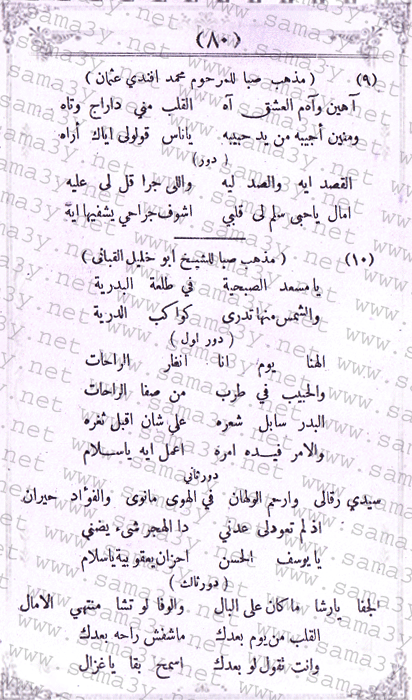 (٨٠)
(٩) (مذهب صبا للمرحوم محمد افندي عثمان)
آهين وآهم العشق آه القلب مني داراج وتاه
ومنين أجيبه من يد حبيبه ياناس قولولى اياك أراه
(دور)
القصد ايه والصد ليه واللى جرا قل لى عليه
امال ياحبى سلم لى قلبي اشوف جراحي يشفيها ايه
(١٠) (مذهب صبا للشيخ أبو خليل القبانى)
يا مسعد الصبحية في طلعة البدرية
والشمس منها تدرى كواكب الدرية
(دور اول)
الهنا يوم انا انظار الراحات
والحبيب في طرب من صفا الراحات
البدر سابل شعره على شان اقبل ثغره
والامر فيده امره اعمل ايه ياسلام
دور ثاني
سيدي رقالى وارحم الولهان في الهوى مانوى والفؤاد حيران
اذ لم تعودلى عدنى دا الهجر شىء يضنى
يا يوسف الحسن احزان يعقوبية ياسلام
(دور ثالث)
الجفا يارشا ما كان على البال والوفا لو تشا منتهي الآمال
القلب من يوم بعدك ماشفش راحه بعدك
وانت تقول لو بعدك اسمح بقا ياغزال
www.sama3y.net